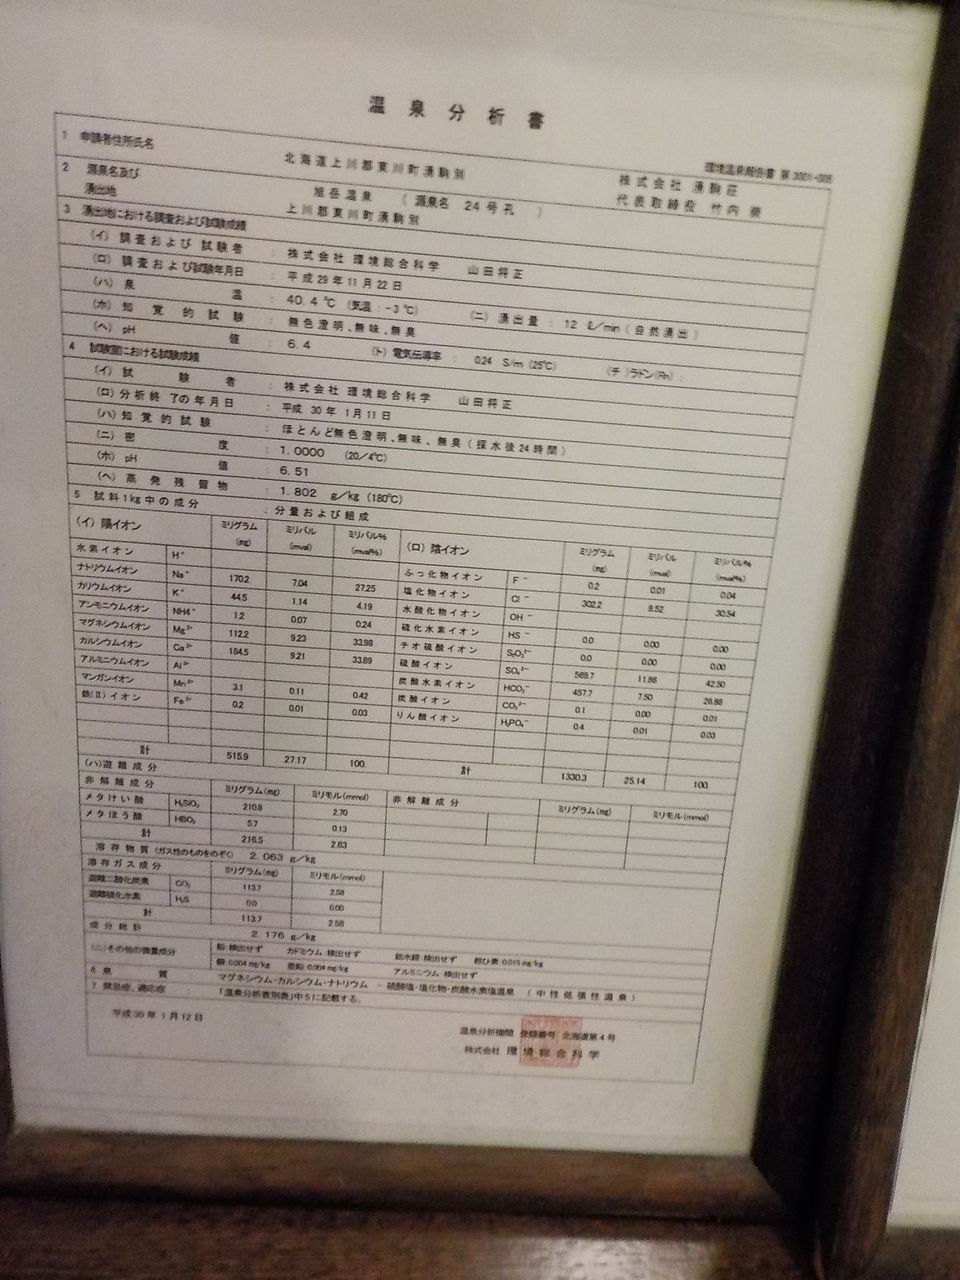 温泉分析書
環境温泉報告書 第3001-005
1 申請者住所氏名 北海道上川郡東川町湧駒別 株式会社 湧駒荘
代表取締役 竹内
2 源泉名及び 旭岳温泉 ( 源泉名 24号孔 )
湧出地 上川郡東川町湧駒別
3 湧出地における調査および試験成績
(イ) 調査および試験者 : 株式会社 環境総合科学 山田将正
(ロ) 調査および試験年月日 : 平成29年11月22日
(ハ) 泉温 : 40.4℃ (気温:-3℃) (ニ) 湧出量 : 12 ℓ/min(自然湧出)
(ホ) 知覚的試験 : 無色澄明、無味、無臭
(ヘ) pH値 : 6.4 (ト) 電気伝導率 : 0.24 S/m (25℃) (チ)ラドン(Rn) :
4 試験室における試験成績
(イ) 試験者 : 株式会社 環境総合科学 山田将正
(ロ) 分析終了の年月日 : 平成30年1月11日
(ハ) 知覚的試験 : ほとんど無色澄明、無味、無臭(採水後24時間)
(ニ) 密度 : 1.0000 (20/4℃)
(ホ) pH値 : 6.51
(ヘ) 蒸発残留物 : 1.802 g/kg (180℃)
5 試料1kg中の成分 : 分量および組成
(イ) 陽イオン ミリグラム(mg) ミリバル(mval) ミリバル%(mval%)
水素イオン H⁺
ナトリウムイオン Na⁺ 170.2 7.04 27.25
カリウムイオン K⁺ 44.5 1.14 4.19
アンモニウムイオン NH4⁺ 1.2 0.07 0.24
マグネシウムイオン Mg²⁺ 112.2 9.23 33.98
カルシウムイオン Ca²⁺ 184.5 9.21 33.89
アルミニウムイオン Al³⁺
マンガンイオン Mn²⁺ 3.1 0.11 0.42
鉄(Ⅱ)イオン Fe²⁺ 0.2 0.01 0.03
計 515.9 27.17 100.
(ロ) 陰イオン ミリグラム(mg) ミリバル(mval) ミリバル%(mval%)
ふっ化物イオン F⁻ 0.2 0.01 0.04
塩化物イオン Cl⁻ 302.2 8.52 30.54
水酸化物イオン OH⁻
硫化水素イオン HS⁻ 0.0 0.00 0.00
チオ硫酸イオン S₂O₃²⁻ 0.0 0.00 0.00
硫酸イオン SO₄²⁻ 569.7 11.86 42.50
炭酸水素イオン HCO₃⁻ 457.7 7.50 26.88
炭酸イオン CO₃²⁻ 0.1 0.00 0.01
りん酸イオン H₂PO₄⁻ 0.4 0.01 0.03
計 1330.3 25.14 100.
(ハ)遊離成分
非解離成分 ミリグラム(mg) ミリモル(mmol) 非解離成分 ミリグラム(mg) ミリモル(mmol)
メタけい酸 H₂SiO₃ 210.8 2.70
メタほう酸 HBO₂ 5.7 0.13
計 216.5 2.83
溶存物質(ガス性のものをのぞく) 2.063 g/kg
溶存ガス成分 ミリグラム(mg) ミリモル(mmol)
遊離二酸化炭素 CO₂ 113.7 2.58
遊離硫化水素 H₂S 0.0 0.00
計 113.7 2.58
成分総計 2.176 g/kg
(ニ)その他の微量成分 鉛:検出せず カドミウム:検出せず 総水銀:検出せず 総ひ素:0.015 mg/kg
銅:0.004 mg/kg 亜鉛:0.064 mg/kg アルミニウム:検出せず
6 泉質 : マグネシウム・カルシウム・ナトリウム - 硫酸塩・塩化物・炭酸水素塩温泉 (中性低張性温泉)
7 禁忌症、適応症 : 「温泉分析表別表」中5に記載する。
平成30年1月12日
温泉分析機関 登録番号 北海道第4号
株式会社 環境総合科学